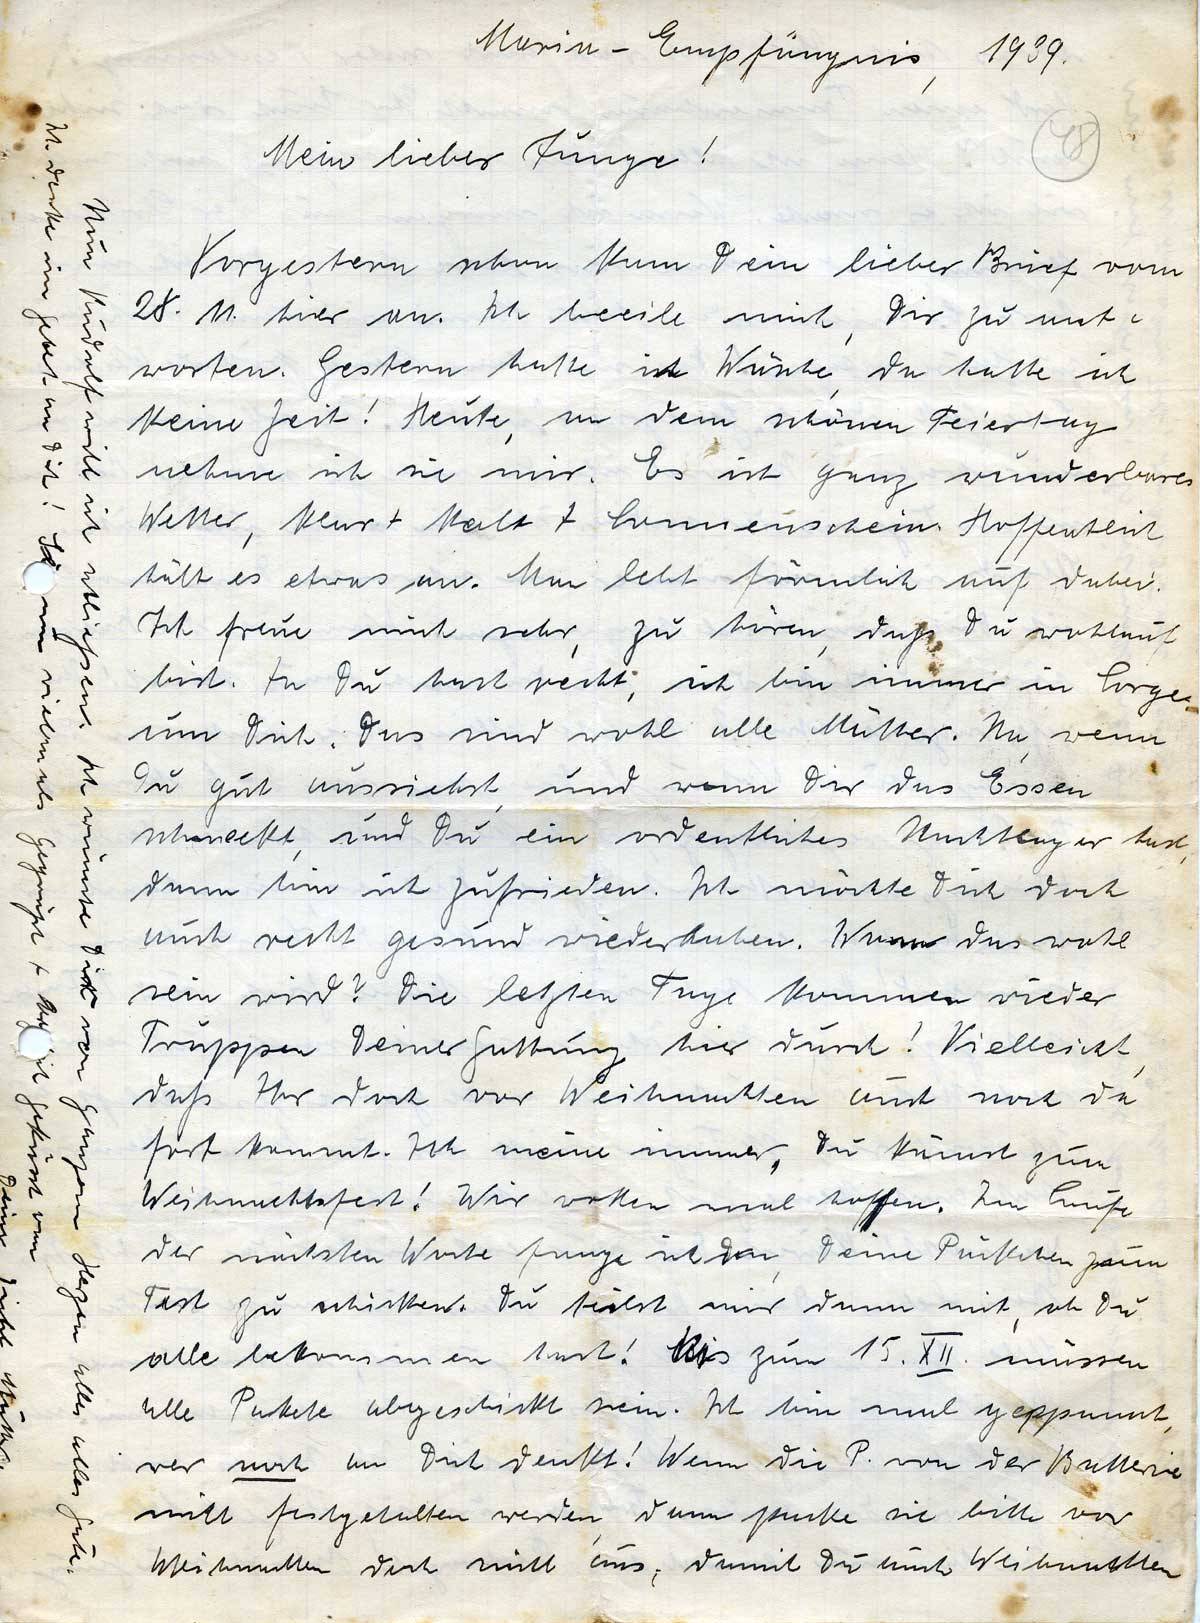 Maria-Empfängnis, 1939.
48
Mein lieber Junge!
Vorgestern schon kam Dein lieber Brief vom
28. 11. hier an. Ich beeile mich, Dir zu ant-
worten. Gestern hatte ich Wäsche, da hatte ich
keine Zeit! Heute, an dem schönen Feiertag
nehme ich sie mir. Es ist ganz wunderbares
Wetter, klar + kalt + Sonnenschein. Hoffentlich
hält es etwas an. Man lebt förmlich auf dabei.
Ich freue mich sehr, zu hören, daß Du wohlauf
bist. Ja Du hast recht, ich bin immer in Sorge
um Dich. Das sind wohl alle Mütter. Na, wenn
Du gut aussiehst, und wenn Dir das Essen
schmeckt, und Du ein ordentliches Nachtlager hast,
dann bin ich zufrieden. Ich möchte Dich doch
auch recht gesund wiederhaben. Wann das wohl
sein wird? Die letzten Tage kommen wieder
Truppen Deiner Gattung hier durch! Vielleicht,
daß Ihr doch vor Weihnachten auch noch da
fort kommt. Ich meine immer, Du kämst zum
Weihnachtsfest! Wir wollen mal hoffen. Im Laufe
der nächsten Woche fange ich an, Deine Päckchen zum
Fest zu schicken. Du teilst mir dann mit, ob Du
alle bekommen hast! Bis zum 15. XII. müssen
alle Pakete abgeschickt sein. Ich bin mal gespannt,
wer noch an Dich denkt! Wenn die P. von der Batterie
nicht festgehalten werden, dann packe sie bitte vor
Weihnachten doch nicht aus, damit Du auch Weihnachten
Nun Rudolf will ich schließen. Ich wünsche Dir von ganzem Herzen alles alles Gute.
Ich denke im Gebet an Dich! Sei nun vielmals gegrüßt + geküsst von
Deiner Mutter.